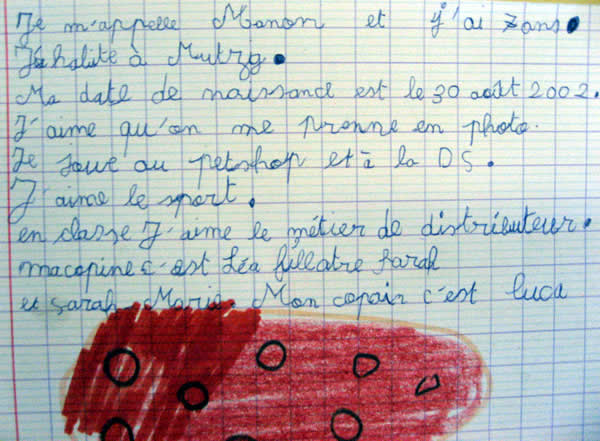 Je m'appelle Manon et j'ai 7 ans.
J'habite à Mutzg.
Ma date de naissance est le 30 août 2002.
J'aime qu'on me prenne en photo.
Je joue au petshop et à la DS.
J'aime le sport.
en classe J'aime le métier de distributeur.
macopine c'est Léa fillatre Sarah
et Sarah Marie. Mon copain c'est luca